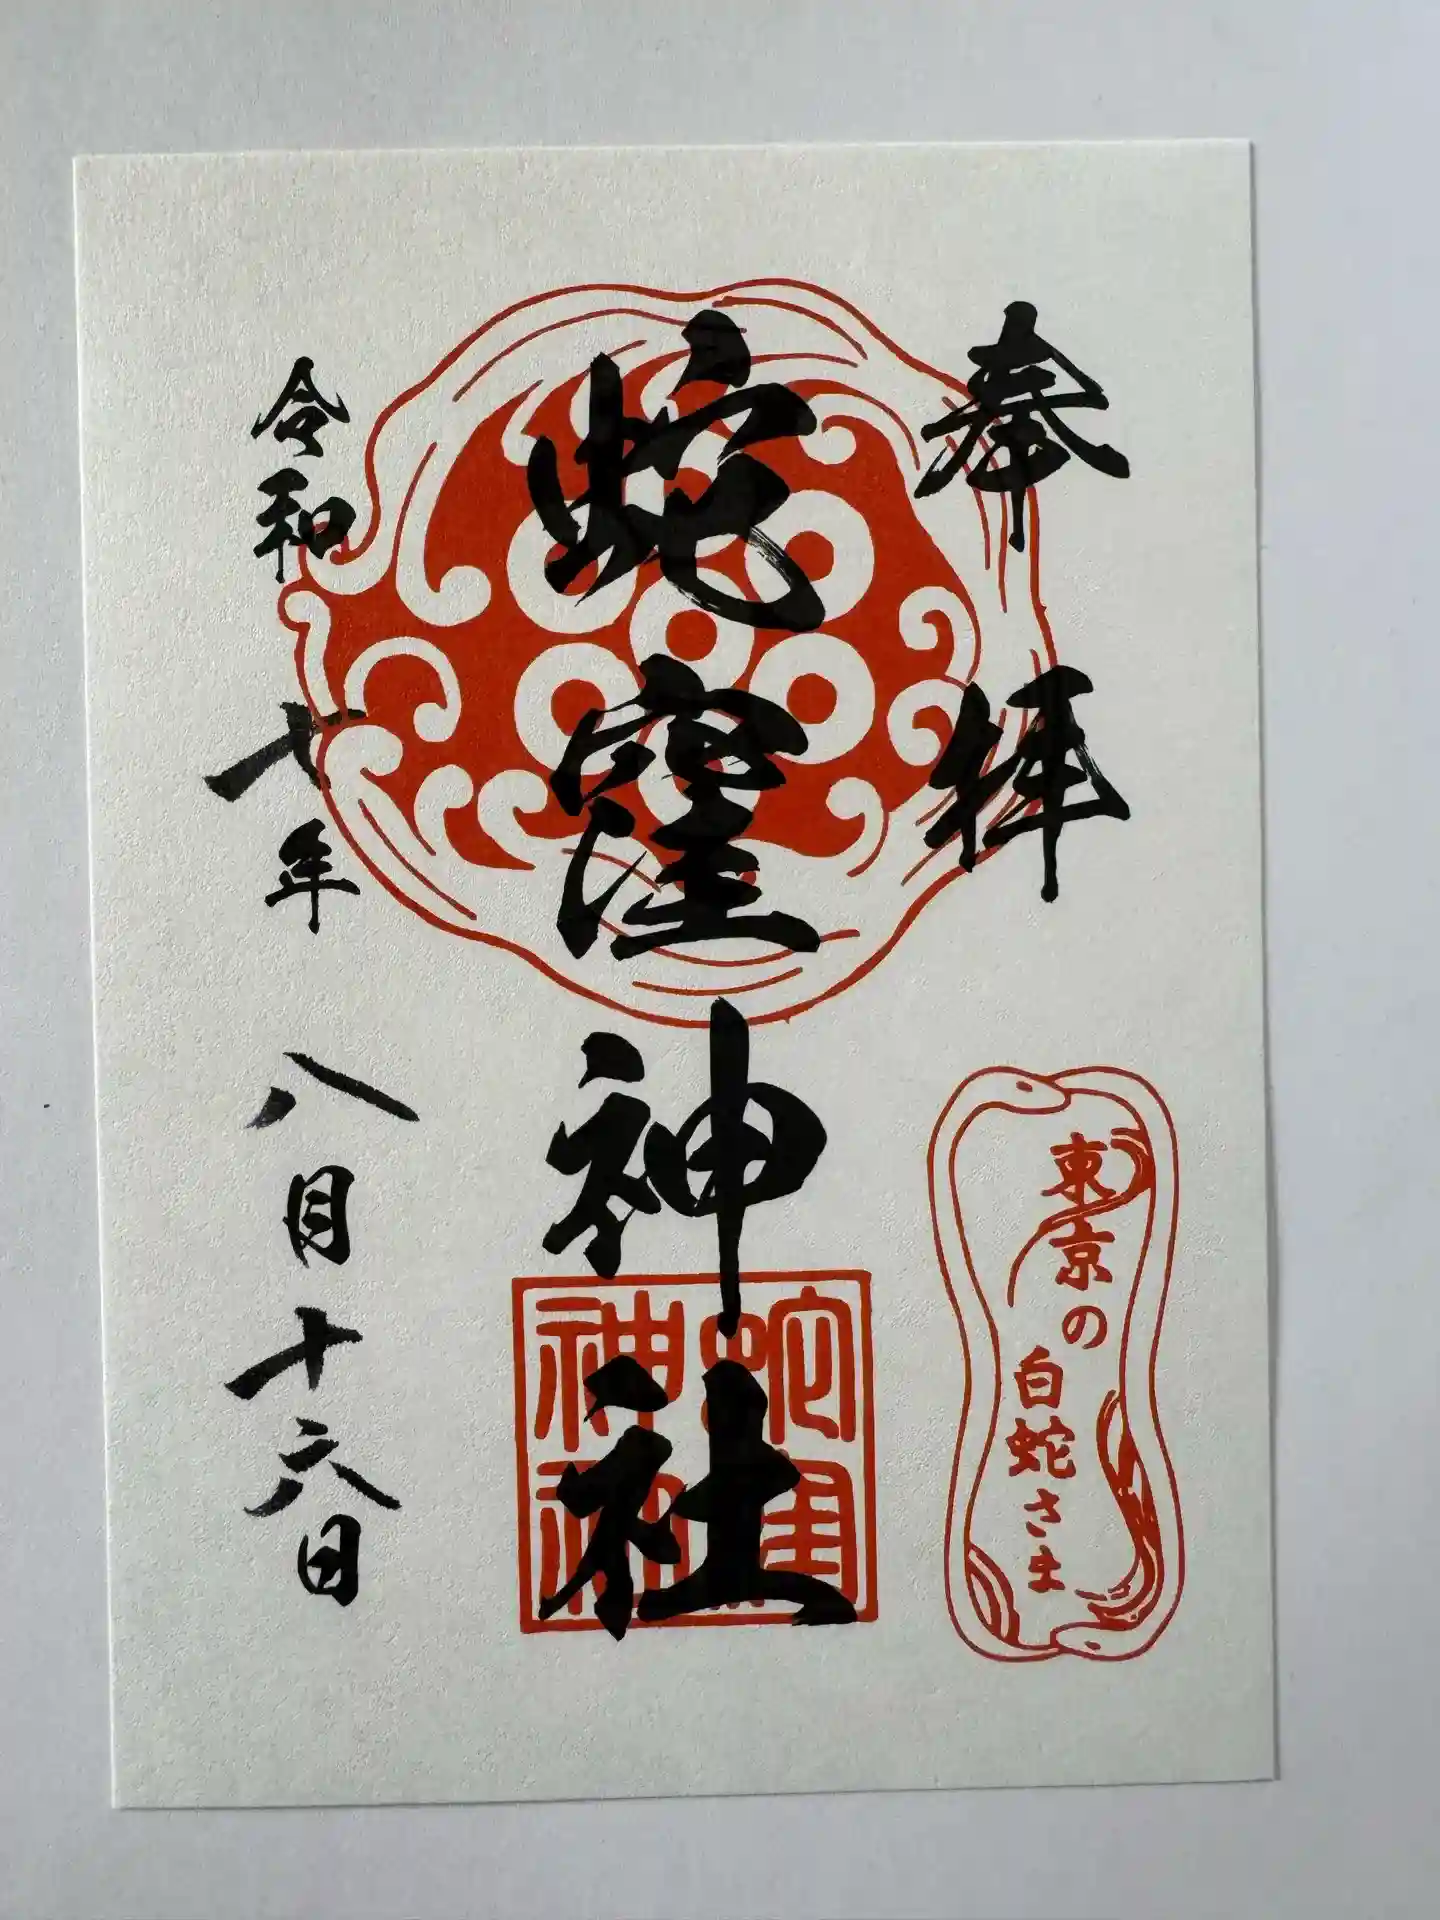 奉拝
蛇窪神社
令和七年 八月十六日
東京の
白蛇さま
蛇窪
神社